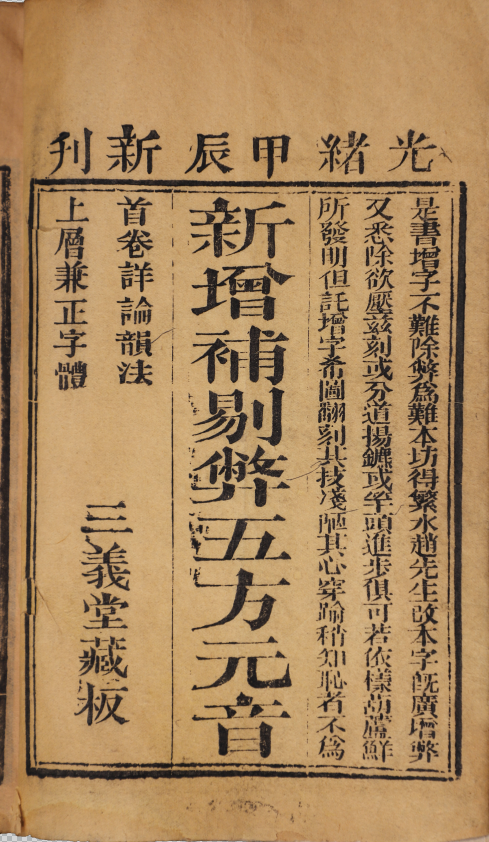 光緒甲辰新刊
是書增字不難除弊爲難本坊得繁水趙先生改本字旣廣增弊
又悉除欲壓玆刻或分道揚鑣或竿頭進步俱可若依樣葫蘆鮮
所發明但託增字希圖翻刻其技淺陋其心穿踰稍知恥者不爲
新增補剔弊五方元音
首卷詳論韻法
上層兼正字體
三義堂藏板